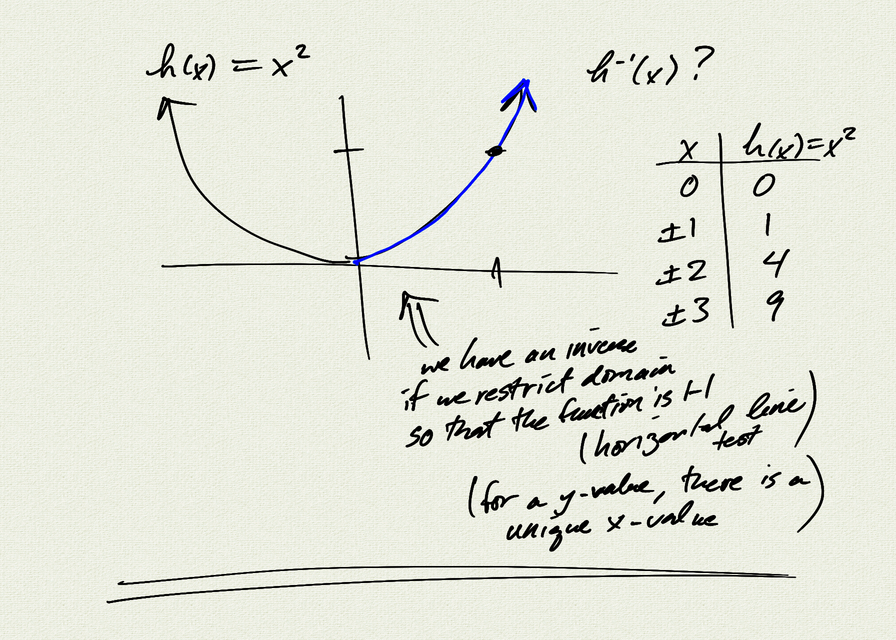 h(x) = x²
h⁻¹(x) ?
x | h(x)=x²
0 | 0
±1 | 1
±2 | 4
±3 | 9
we have an inverse
if we restrict domain
so that the function is 1-1
(horizontal line
test)
(for a y-value, there is a
unique x-value)